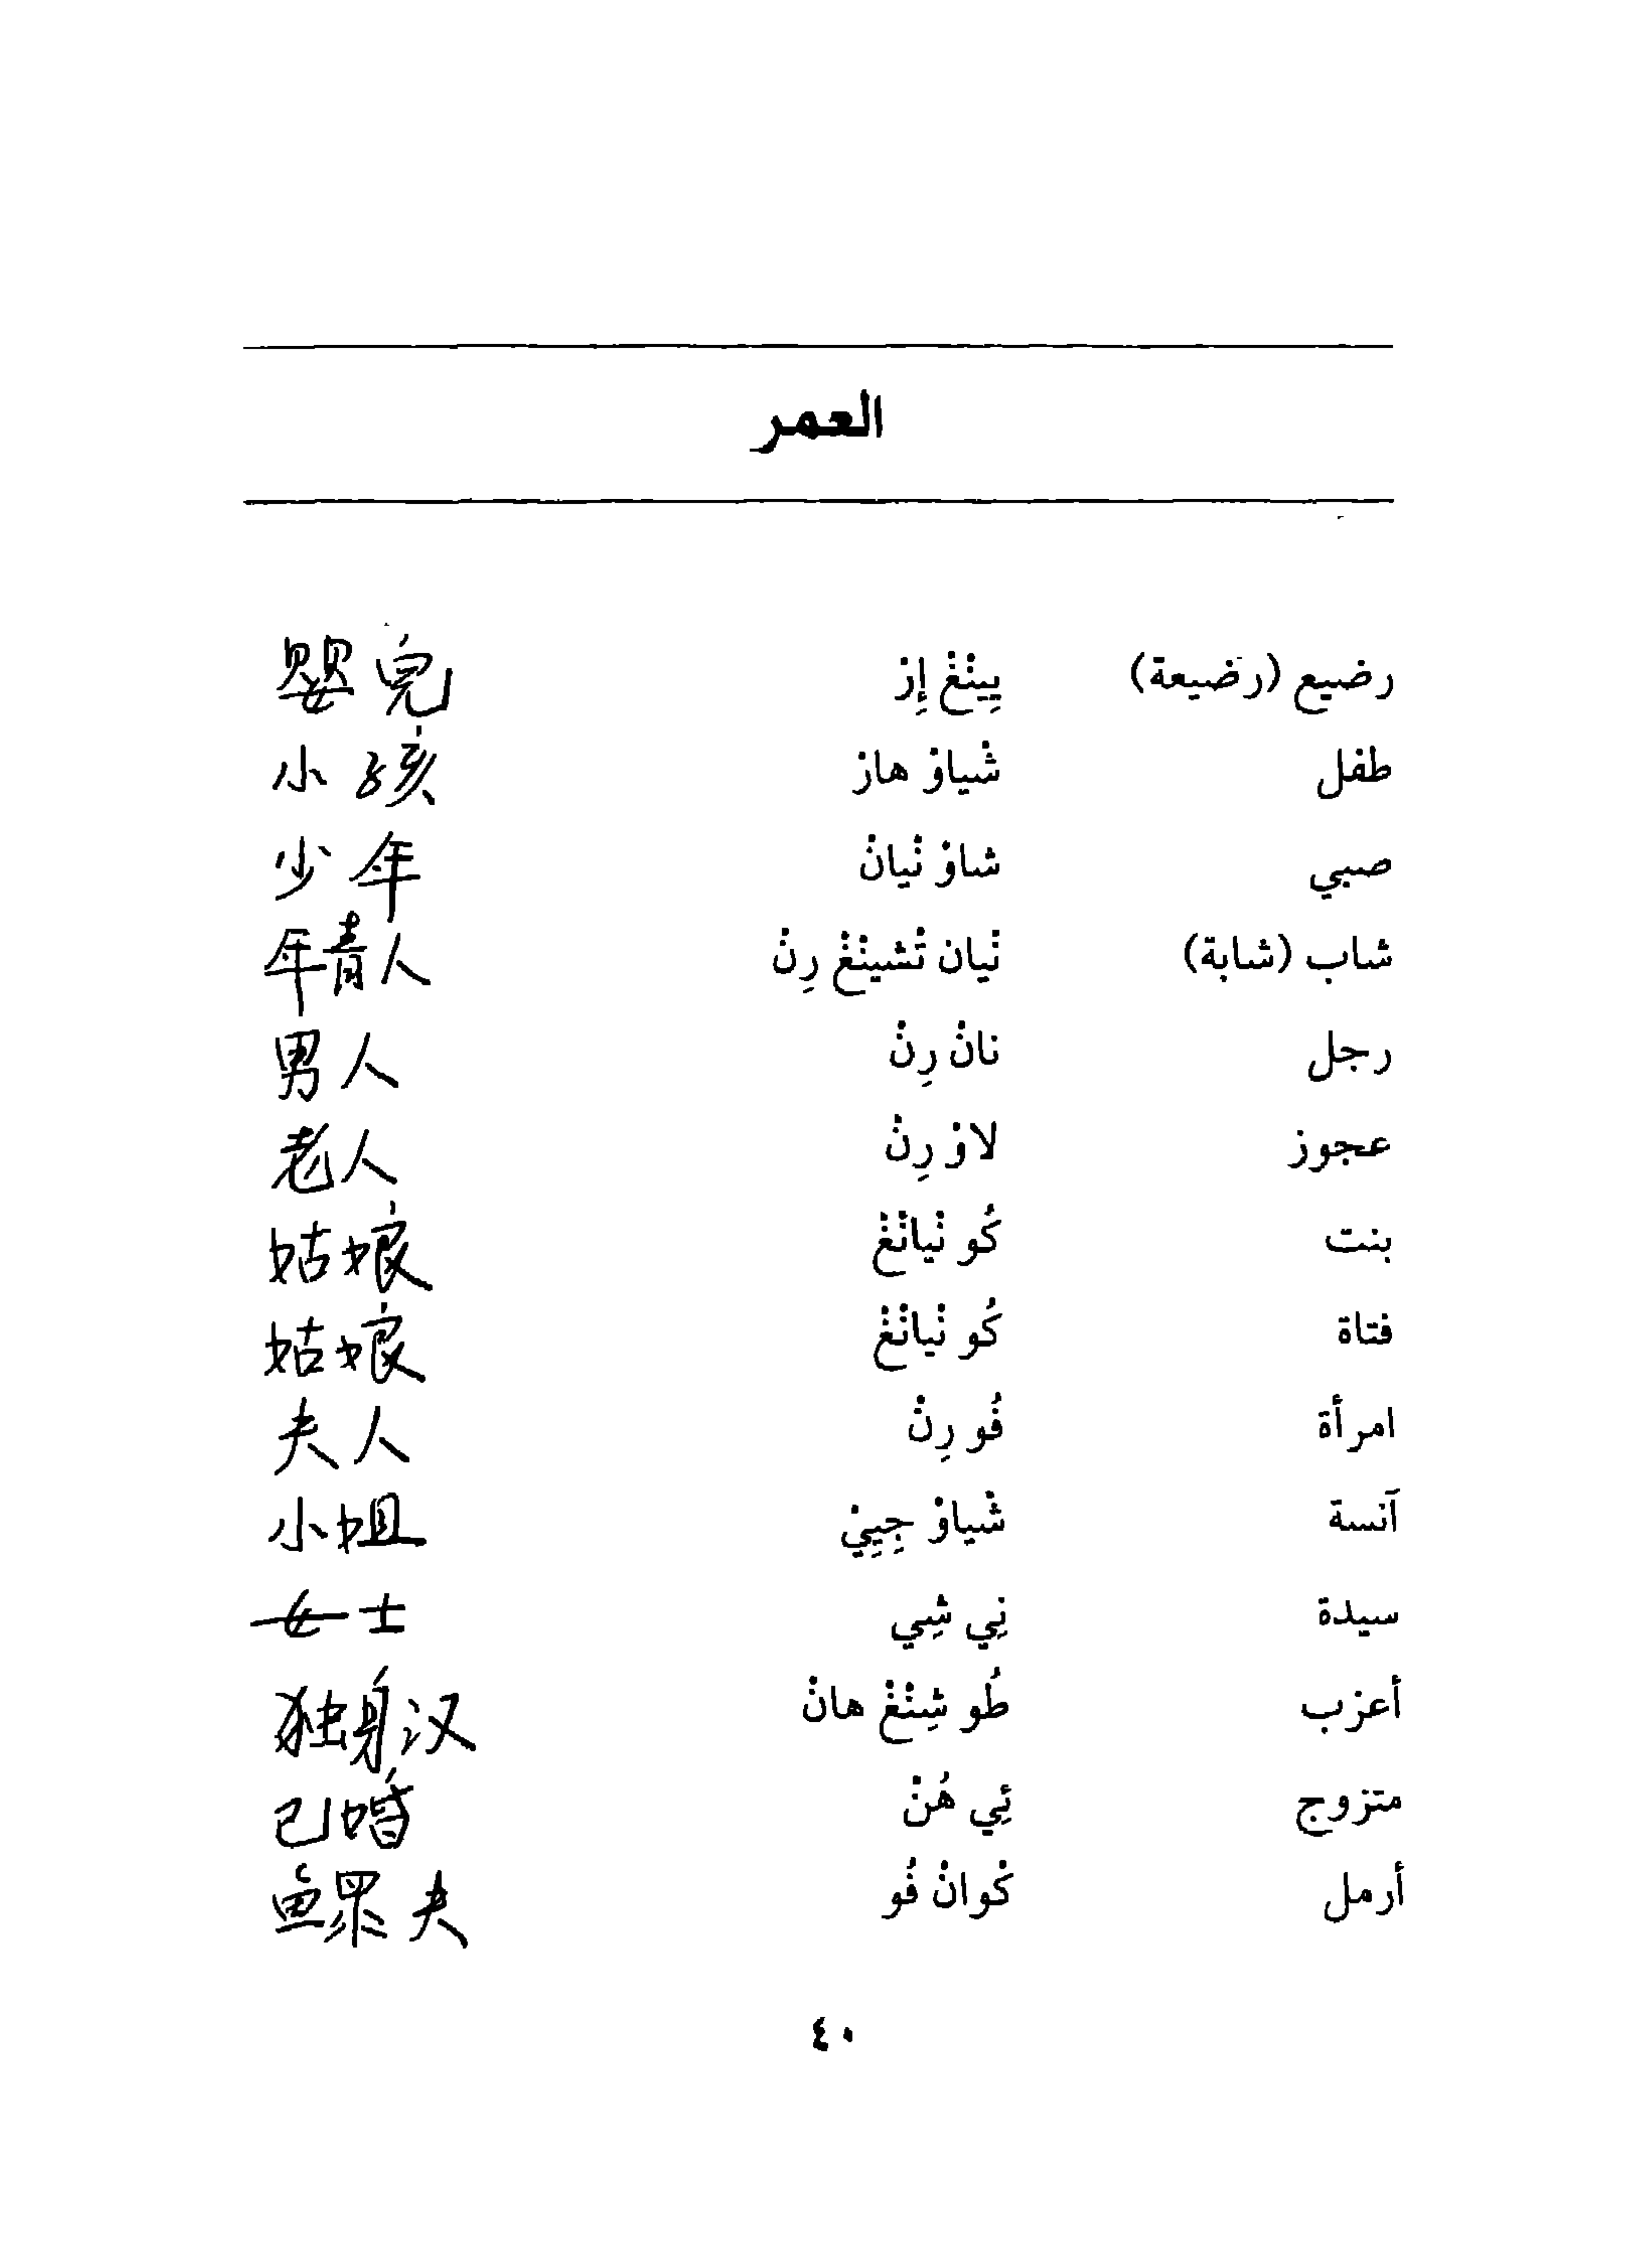 العمر
رضيع (رضيعة) يِينْغْ إِرْ 婴兒
طفل شْياوْ هازْ 小孩
صبي شاوْ نْيانْ 少年
شاب (شابة) نْيان تْشينْغْ رِنْ 年青人
رجل نانْ رِنْ 男人
عجوز لاوْ رِنْ 老人
بنت كُو نْيانْغْ 姑娘
فتاة كُو نْيانْغْ 姑娘
امرأة فُو رِنْ 夫人
آنسة شْياوْ جِيِيْ 小姐
سيدة نِي شِي 女士
أعزب طُو شِنْغْ هانْ 独身汉
متزوج ئِي هُنْ 已婚
أرمل كْوانْ فُو 鳏夫
٤٠